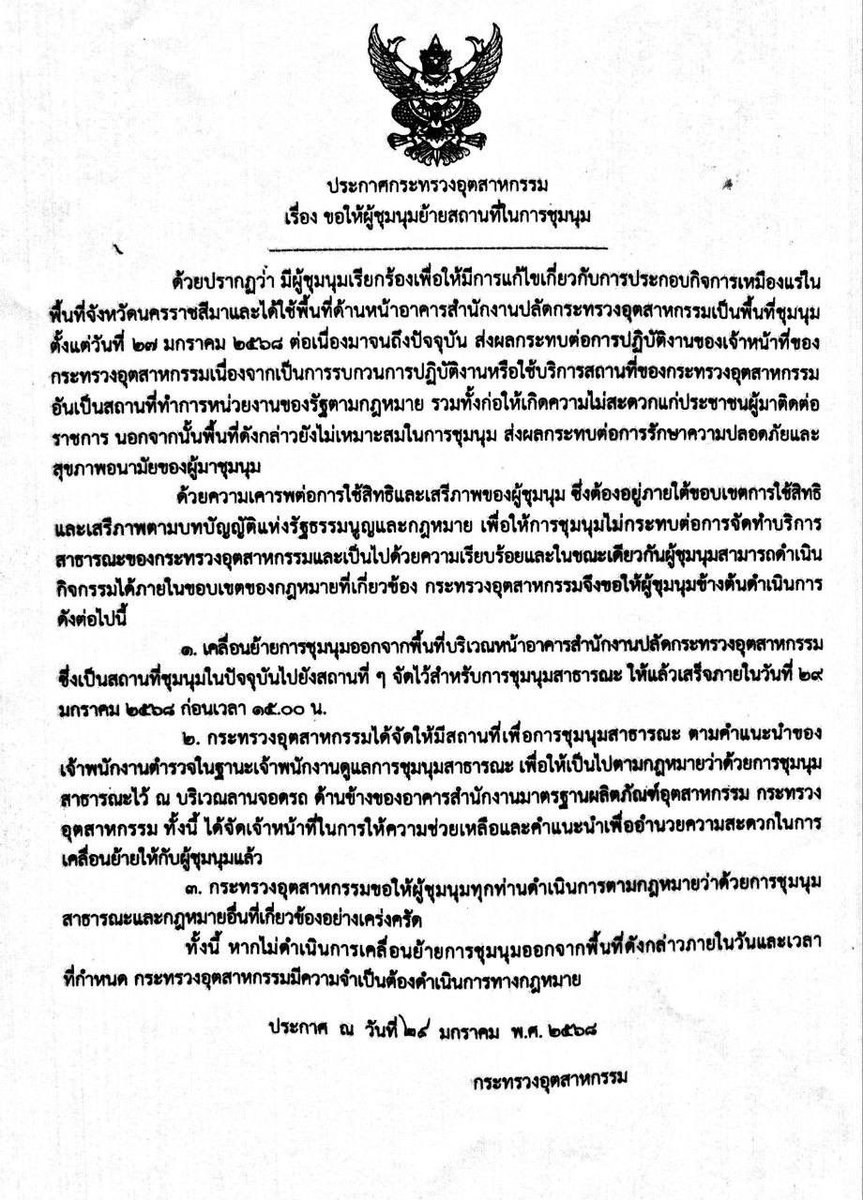 ประกาศกระทรวงอุตสาหกรรม
เรื่อง ขอให้ผู้ชุมนุมย้ายสถานที่ในการชุมนุม
ด้วยปรากฏว่า มีผู้ชุมนุมเรียกร้องเพื่อให้มีการแก้ไขเกี่ยวกับการประกอบกิจการเหมืองแร่ใน
พื้นที่จังหวัดนครราชสีมาและได้ใช้พื้นที่ด้านหน้าอาคารสำนักงานปลัดกระทรวงอุตสาหกรรมเป็นพื้นที่ชุมนุม
ตั้งแต่วันที่ ๒๗ มกราคม ๒๕๖๘ ต่อเนื่องมาจนถึงปัจจุบัน ส่งผลกระทบต่อการปฏิบัติงานของเจ้าหน้าที่ของ
กระทรวงอุตสาหกรรมเนื่องจากเป็นการรบกวนการปฏิบัติงานหรือใช้บริการสถานที่ของกระทรวงอุตสาหกรรม
อันเป็นสถานที่ทำการหน่วยงานของรัฐตามกฎหมาย รวมทั้งก่อให้เกิดความไม่สะดวกแก่ประชาชนผู้มาติดต่อ
ราชการ นอกจากนั้นพื้นที่ดังกล่าวยังไม่เหมาะสมในการชุมนุม ส่งผลกระทบต่อการรักษาความปลอดภัยและ
สุขภาพอนามัยของผู้มาชุมนุม
ด้วยความเคารพต่อการใช้สิทธิและเสรีภาพของผู้ชุมนุม ซึ่งต้องอยู่ภายใต้ขอบเขตการใช้สิทธิ
และเสรีภาพตามบทบัญญัติแห่งรัฐธรรมนูญและกฎหมาย เพื่อให้การชุมนุมไม่กระทบต่อการจัดทำบริการ
สาธารณะของกระทรวงอุตสาหกรรมและเป็นไปด้วยความเรียบร้อยและในขณะเดียวกันผู้ชุมนุมสามารถดำเนิน
กิจกรรมได้ภายในขอบเขตของกฎหมายที่เกี่ยวข้อง กระทรวงอุตสาหกรรมจึงขอให้ผู้ชุมนุมข้างต้นดำเนินการ
ดังต่อไปนี้
๑. เคลื่อนย้ายการชุมนุมออกจากพื้นที่บริเวณหน้าอาคารสำนักงานปลัดกระทรวงอุตสาหกรรม
ซึ่งเป็นสถานที่ชุมนุมในปัจจุบันไปยังสถานที่ ๆ จัดไว้สำหรับการชุมนุมสาธารณะ ให้แล้วเสร็จภายในวันที่ ๒๙
มกราคม ๒๕๖๘ ก่อนเวลา ๑๕.๐๐ น.
๒. กระทรวงอุตสาหกรรมได้จัดให้มีสถานที่เพื่อการชุมนุมสาธารณะ ตามคำแนะนำของ
เจ้าพนักงานตำรวจในฐานะเจ้าพนักงานดูแลการชุมนุมสาธารณะ เพื่อให้เป็นไปตามกฎหมายว่าด้วยการชุมนุม
สาธารณะไว้ ณ บริเวณลานจอดรถ ด้านข้างของอาคารสำนักงานมาตรฐานผลิตภัณฑ์อุตสาหกรรม กระทรวง
อุตสาหกรรม ทั้งนี้ ได้จัดเจ้าหน้าที่ในการให้ความช่วยเหลือและคำแนะนำเพื่ออำนวยความสะดวกในการ
เคลื่อนย้ายให้กับผู้ชุมนุมแล้ว
๓. กระทรวงอุตสาหกรรมขอให้ผู้ชุมนุมทุกท่านดำเนินการตามกฎหมายว่าด้วยการชุมนุม
สาธารณะและกฎหมายอื่นที่เกี่ยวข้องอย่างเคร่งครัด
ทั้งนี้ หากไม่ดำเนินการเคลื่อนย้ายการชุมนุมออกจากพื้นที่ดังกล่าวภายในวันและเวลา
ที่กำหนด กระทรวงอุตสาหกรรมมีความจำเป็นต้องดำเนินการทางกฎหมาย
ประกาศ ณ วันที่ ๒๙ มกราคม พ.ศ. ๒๕๖๘
กระทรวงอุตสาหกรรม